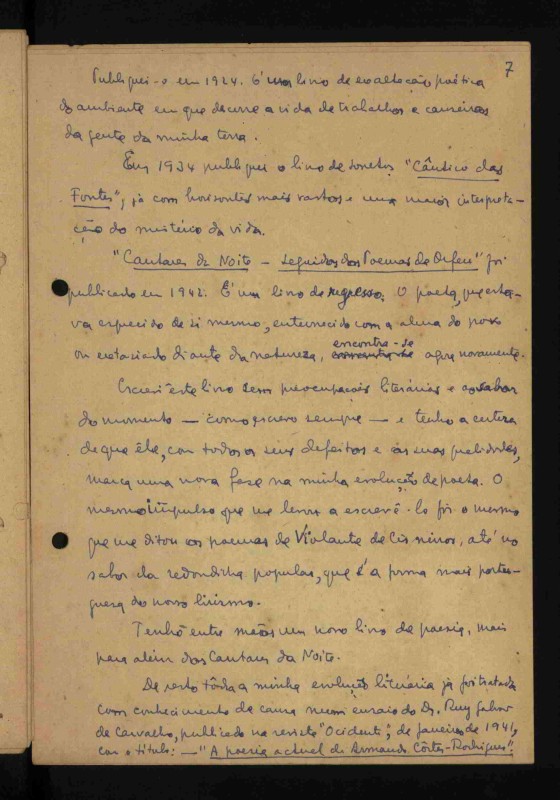 7
Publiquei-o em 1924. É um livro de exaltação poética
do ambiente em que decorre a vida de trabalhos e canseiras
da gente da minha terra.
Em 1934 publiquei o livro de sonetos "Cântico das
Fontes", já com horizontes mais vastos e uma maior interpreta-
ção do mistério da vida.
"Cantares da Noite — seguidos dos Poemas de Orfeu" foi
publicado em 1942. É um livro de regresso. O poeta, que esta-
va esquecido de si mesmo, enternecido com a alma do povo
ou extasiado diante da natureza, encontra-se agora novamente.
Escrevi êste livro sem preocupações literárias e ao sabor
do momento — como escrevo sempre — e tenho a certeza
de que êle, com todos os seus defeitos e as suas qualidades,
marca uma nova fase na minha evolução de poeta. O
mesmo impulso que me levou a escrevê-lo foi o mesmo
que me ditou os poemas de Violante de Cisneiros, até no
sabor da redondilha popular, que é a forma mais portu-
guesa do nosso lirismo.
Tenho entre mãos um novo livro de poesia, mais
para além dos Cantares da Noite.
De resto tôda a minha evolução literária já foi tratada
com conhecimento de causa num ensaio do Dr. Ruy Galvão
de Carvalho, publicado na revista "Ocidente", de Janeiro de 1941,
com o titulo: — "A poesia actual de Armando Côrtes-Rodrigues".